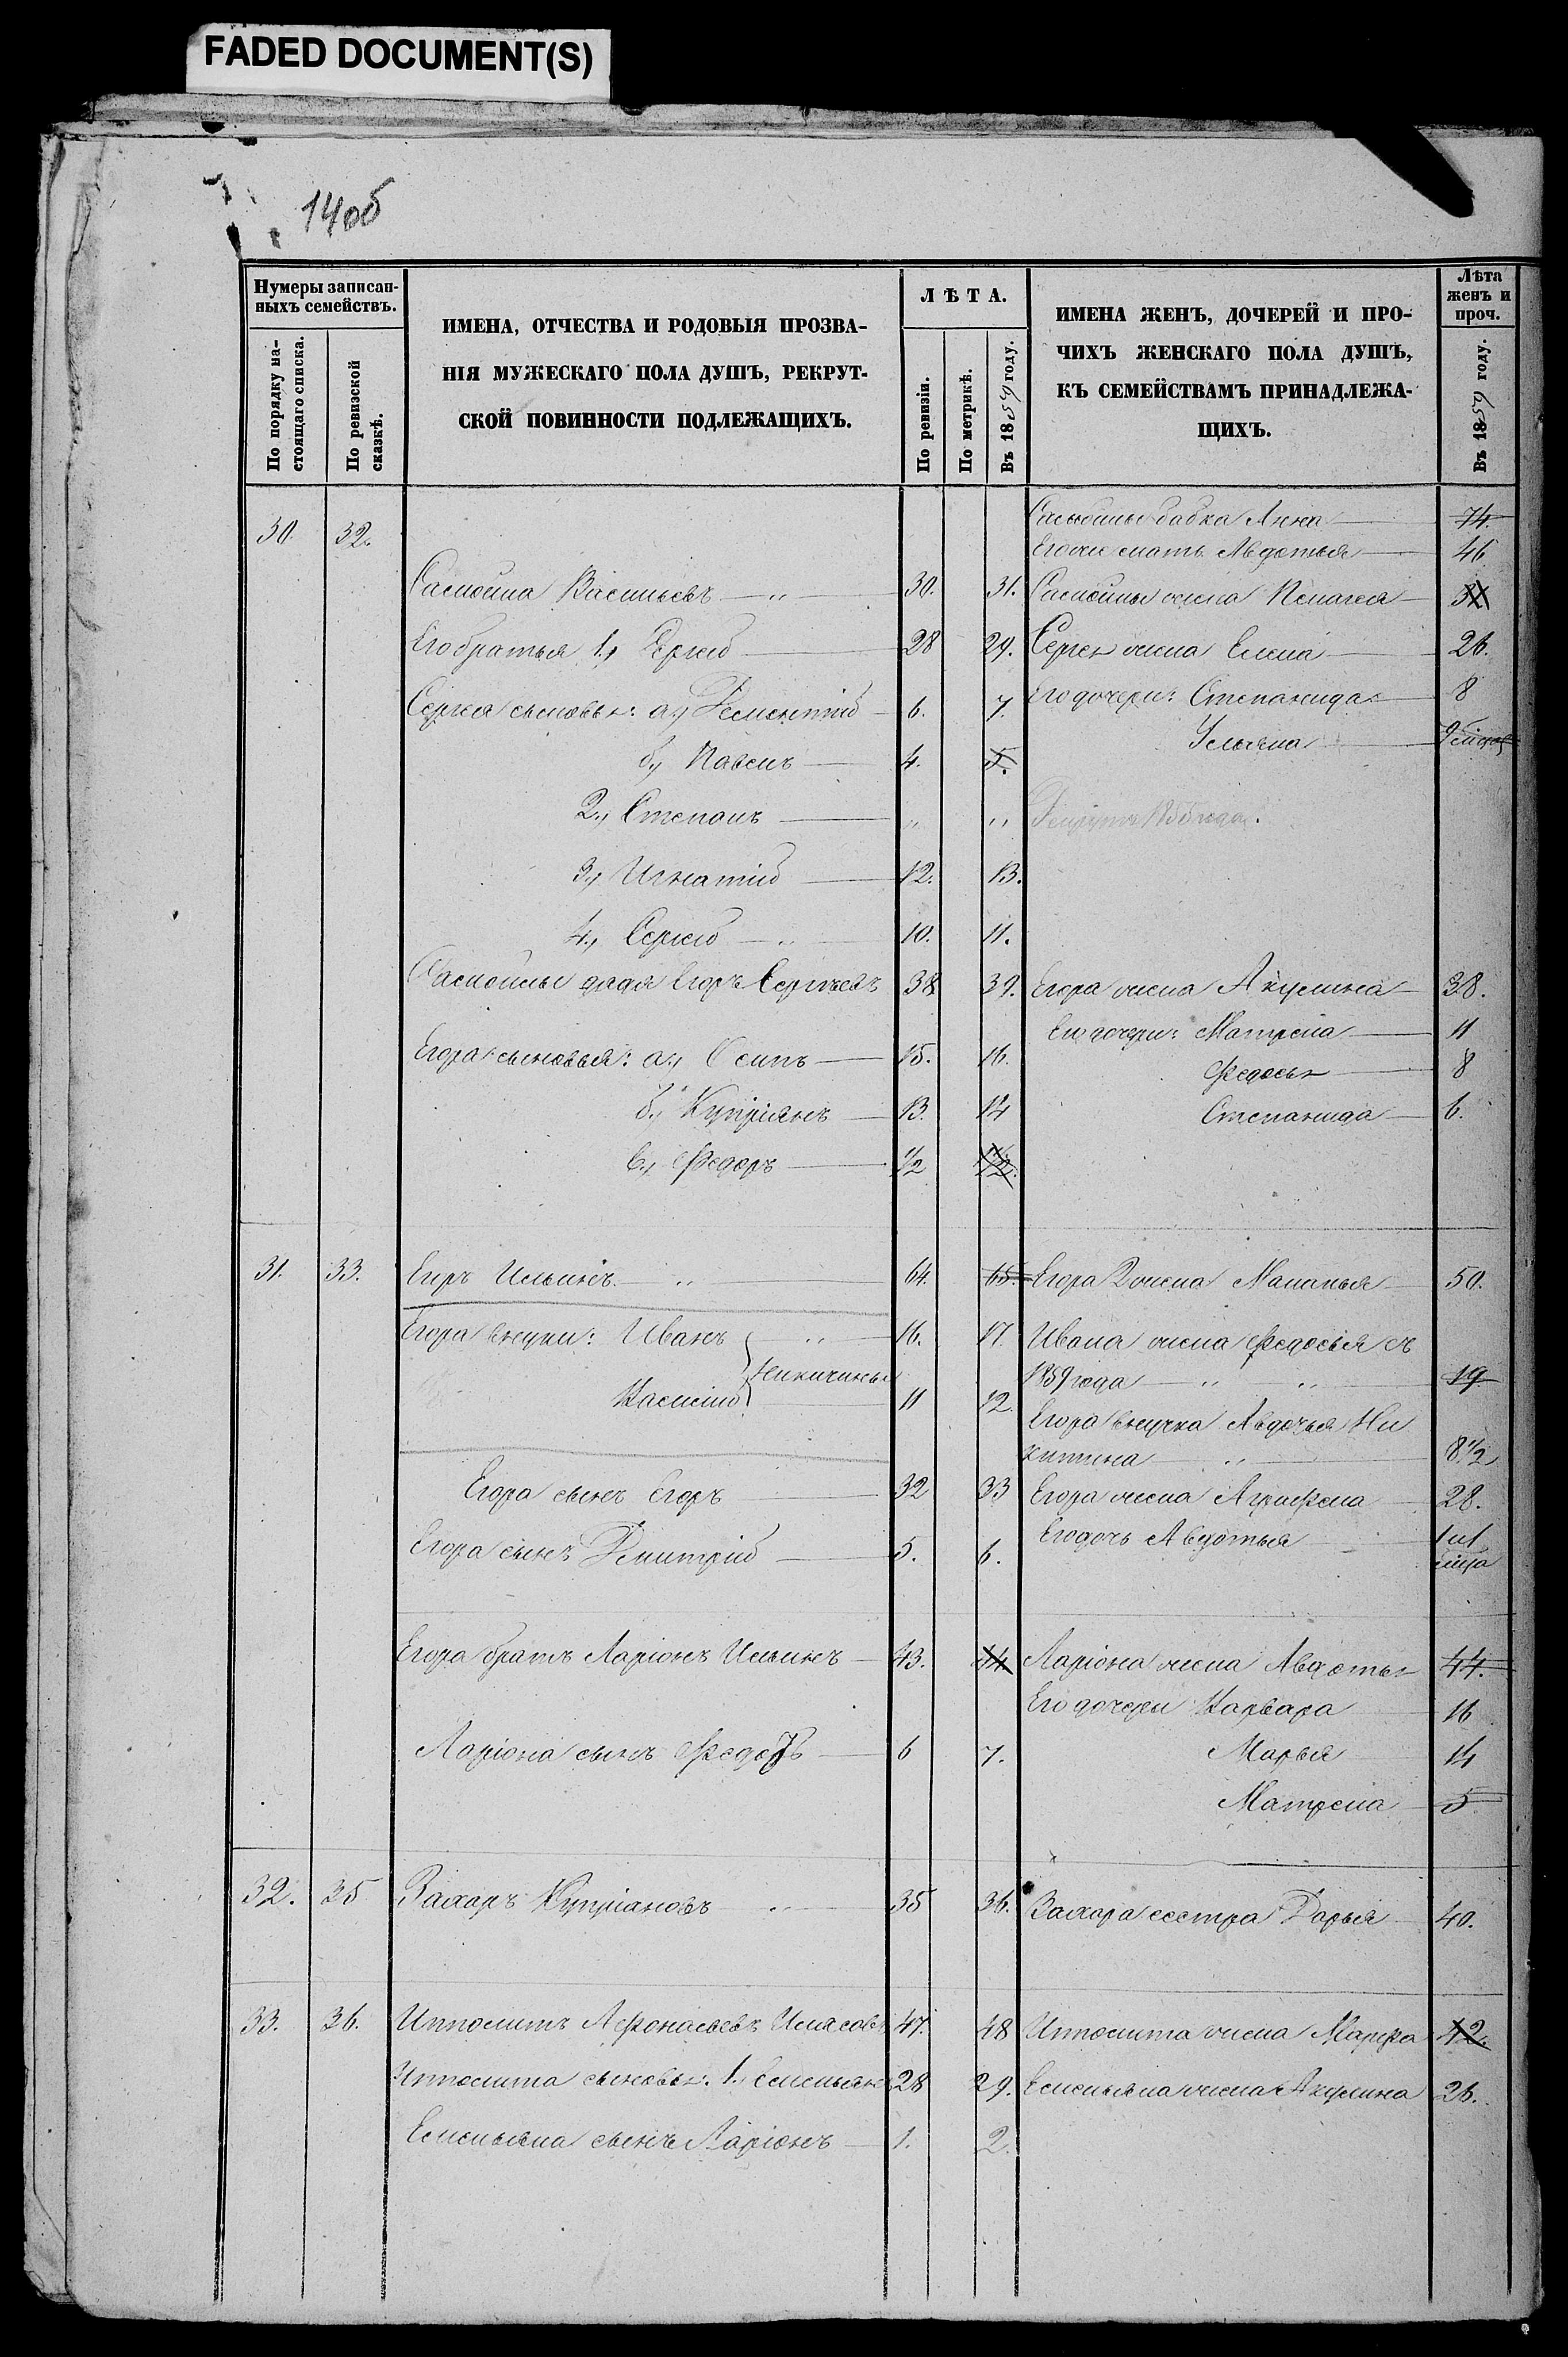 FADED DOCUMENT(S)
14 об
Нумеры записан-
ныхъ семействъ.
По порядку на-
стоящаго списка.
По ревизской
сказкѣ.
ИМЕНА, ОТЧЕСТВА И РОДОВЫЯ ПРОЗВА-
НІЯ МУЖЕСКАГО ПОЛА ДУШЪ, РЕКРУТ-
СКОЙ ПОВИННОСТИ ПОДЛЕЖАЩИХЪ.
ЛѢТА.
По ревизіи.
По метрикѣ.
Въ 1859 году.
ИМЕНА ЖЕНЪ, ДОЧЕРЕЙ И ПРО-
ЧИХЪ ЖЕНСКАГО ПОЛА ДУШЪ,
КЪ СЕМЕЙСТВАМЪ ПРИНАДЛЕЖА-
ЩИХЪ.
Лѣта
женъ и
проч.
Въ 1859 году.
30. 32. Самойлы бабка Анна 74
Его же мать Авдотья 46
Самойла Васильевъ 30. 31. Самойлы жена Пелагея
Его братья 1., Сергей 28 29. Сергея жена Елена 26.
Сергея сыновья: а., Дементій 6. 7. Его дочери: Степанида 8
Ульяна
б., Павелъ 4. 5.
2., Степанъ " " Рекрутъ 1855 года.
3., Игнатій 12. 13.
4., Сергей 10. 11.
Самойлы дядя Егоръ Сергѣевъ 38 39. Егора жена Акулина 38.
Его дочери: Матрена 11
Егора сыновья: а., Осипъ 15. 16. Федосья 8
б., Купріянъ 13. 14 Степанида 6.
в., Федоръ 1/2 1 1/2
31. 33. Егоръ Ильинъ 64. 65. Егора 2 жена Маланья 50.
Егора внуки: Иванъ 16. 17. Ивана жена Федосья съ
Никитины 1859 года 19
Василій 11 12.
Егора внучка Авдотья Ни
китина 8 1/2
Егора сынъ Егоръ 32 33 Егора жена Аграфена 28.
Егора сынъ Дмитрій 5. 6. Его дочь Авдотья
Егора братъ Ларіонъ Ильинъ 43. 44 Ларіона жена Авдотья 44.
Его дочери Варвара 16
Ларіона сынъ Федоръ 6 7. Марья 14
Матрена 5
32. 35 Захаръ Купріановъ 35 36. Захара сестра Дарья 40.
33. 36. Ипполитъ Афонасьевъ Илясовъ 47. 48 Ипполита жена Марфа 42.
Ипполита сыновья: 1., Емельянъ 28 29. Емельяна жена Акулина 26.
Емельяна сынъ Ларіонъ 1. 2.